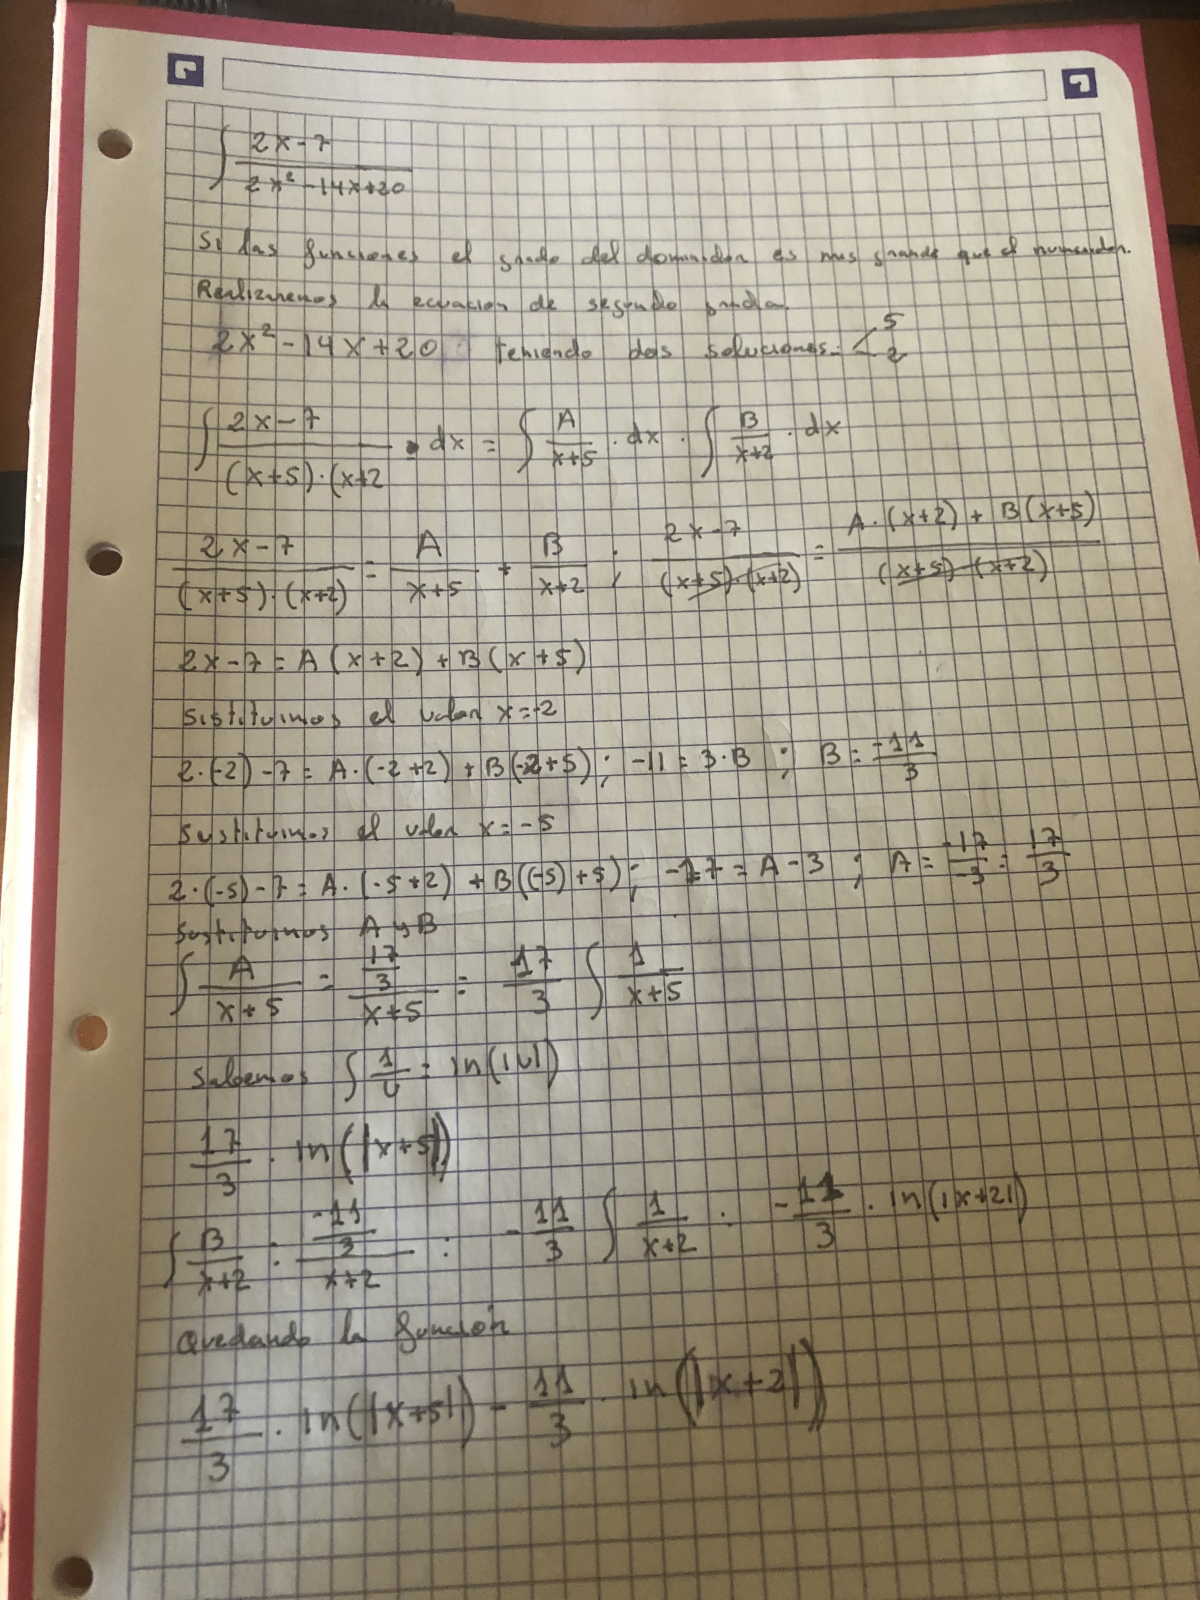 ∫ (2x-7)/(2x²-14x+20)
Si las funciones el grado del domindor es mas grande que el numerador.
Realizaremos la ecuacion de segundo grado
2x²-14x+20 teniendo dos soluciones. < 5 2
∫ (2x-7)/((x+5)·(x+2) · dx = ∫ A/(x+5) · dx · ∫ B/(x+2) · dx
(2x-7)/((x+5)·(x+2)) = A/(x+5) + B/(x+2) ; (2x-7)/((x+5)·(x+2)) = (A·(x+2) + B(x+5))/((x+5)·(x+2))
2x-7 = A(x+2) + B(x+5)
Sistituimos el valor x=-2
2·(-2)-7 = A·(-2+2) + B(-2+5); -11 = 3·B ; B = -11/3
Sustituimos el valor x=-5
2·(-5)-7 = A·(-5+2) + B((-5)+5); -17 = A-3 ; A = -17/-3 = 17/3
Sustituimos A y B
∫ A/(x+5) = (17/3)/(x+5) = 17/3 ∫ 1/(x+5)
Sabemos ∫ 1/u = ln(|u|)
17/3 · ln(|x+5|)
∫ B/(x+2) = (-11/3)/(x+2) = -11/3 ∫ 1/(x+2) = -11/3 · ln(|x+2|)
Quedando la función
17/3 · ln(|x+5|) - 11/3 · ln(|x+2|)